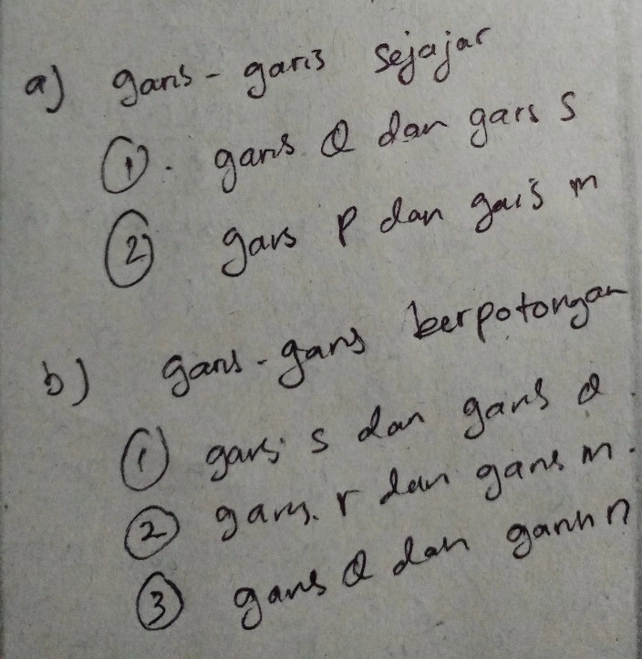 a) garis - garis sejajar
①. garis Q dan garis s
② garis p dan garis m
b) garis - garis berpotongan
① garis s dan garis Q.
② garis. r dan garis m.
③ garis Q dan garis n